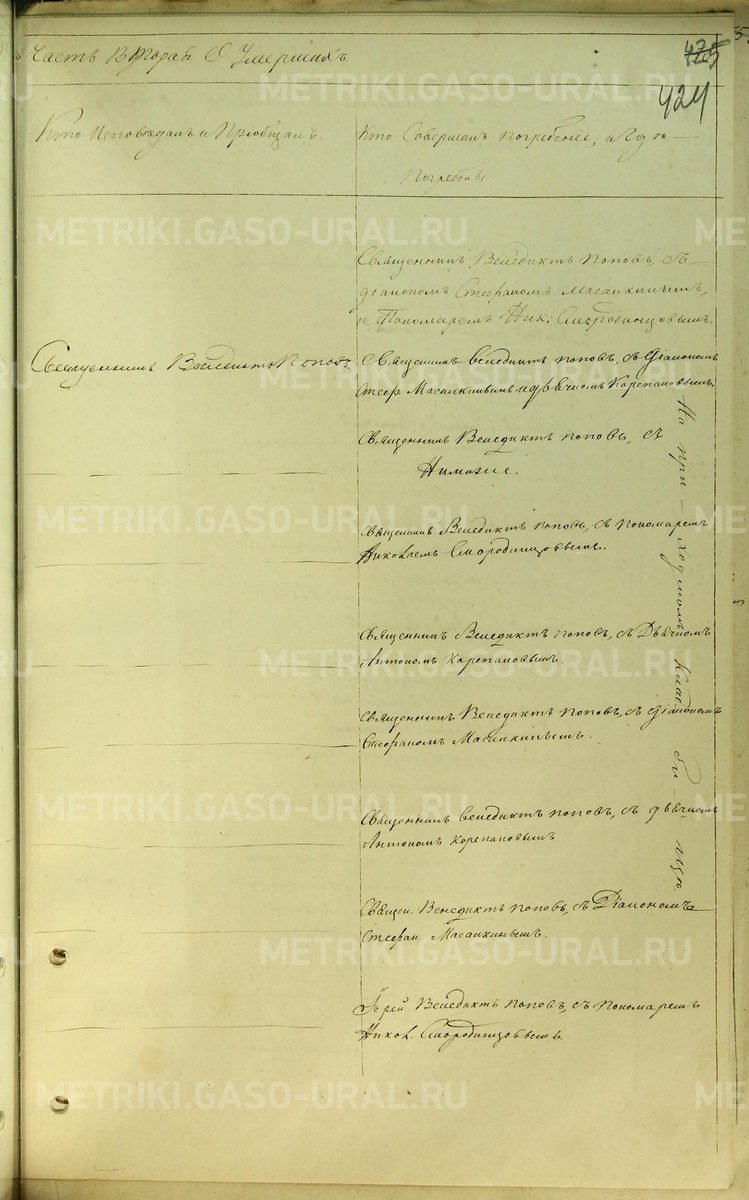 Часть Вторая О Умершихъ
425
424
Кто Исповѣдалъ и Пріобщалъ.
Кто Совершалъ погребеніе, и Гдѣ
Погребены
Священникъ Венедиктъ Поповъ, съ
діакономъ Стефаномъ Масалкинымъ,
и Пономаремъ Ник: Смородинцовымъ.
Священникъ Венедиктъ Поповъ
Священникъ Венедиктъ Поповъ, съ Діакономъ
Стеф. Масалкинымъ и дьячкомъ Корепановымъ.
Священникъ Венедиктъ Поповъ, съ
Нимиже.
Священникъ Венедиктъ Поповъ, съ Пономаремъ
Николаемъ Смородинцовымъ.
Священникъ Венедиктъ Поповъ, съ Дьячкомъ
Антономъ Корепановымъ.
Священникъ Венедиктъ Поповъ, съ Діакономъ
Стефаномъ Масалкинымъ.
Священникъ Венедиктъ Поповъ, съ дьячкомъ
Антономъ Корепановымъ
Священ. Венедиктъ Поповъ, съ Діакономъ
Стефан. Масалкинымъ.
Іерей Венедиктъ Поповъ, съ Пономаремъ
Никол. Смородинцовымъ.
На при-ходскомъ клад-би-щѣ.
METRIKI.GASO-URAL.RU